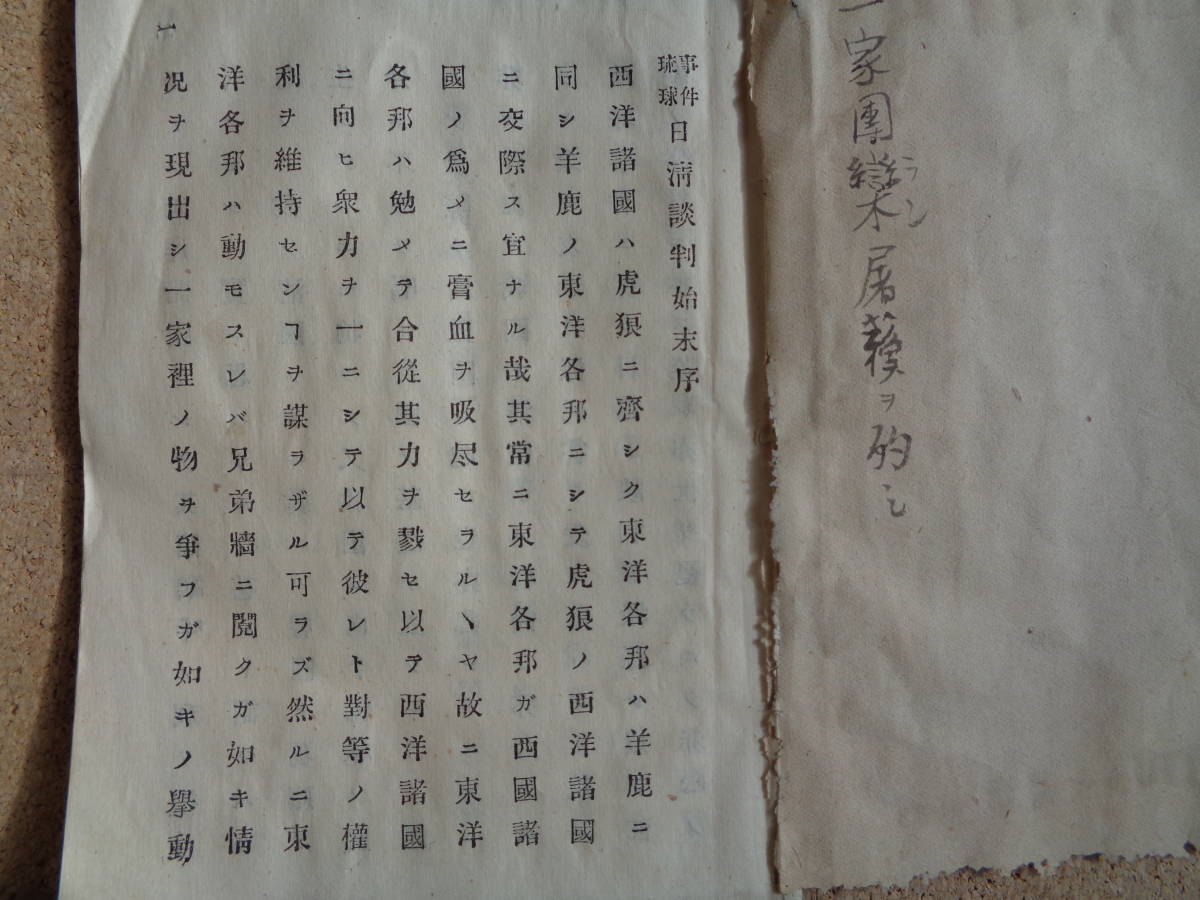 一家團欒屠蘓ヲ酌シ
ラン
琉球事件日清談判始末序
西洋諸國ハ虎狼ニ齊シク東洋各邦ハ羊鹿ニ
同シ羊鹿ノ東洋各邦ニシテ虎狼ノ西洋諸國
ニ交際ス宜ナル哉其常ニ東洋各邦ガ西國諸
國ノ爲メニ膏血ヲ吸尽セラルヽヤ故ニ東洋
各邦ハ勉メテ合從其力ヲ戮セ以テ西洋諸國
ニ向ヒ衆力ヲ一ニシテ以テ彼レト對等ノ權
利ヲ維持センヿヲ謀ラザル可ラズ然ルニ東
洋各邦ハ動モスレバ兄弟牆ニ鬩クガ如キ情
况ヲ現出シ一家裡ノ物ヲ爭フガ如キノ擧動
一